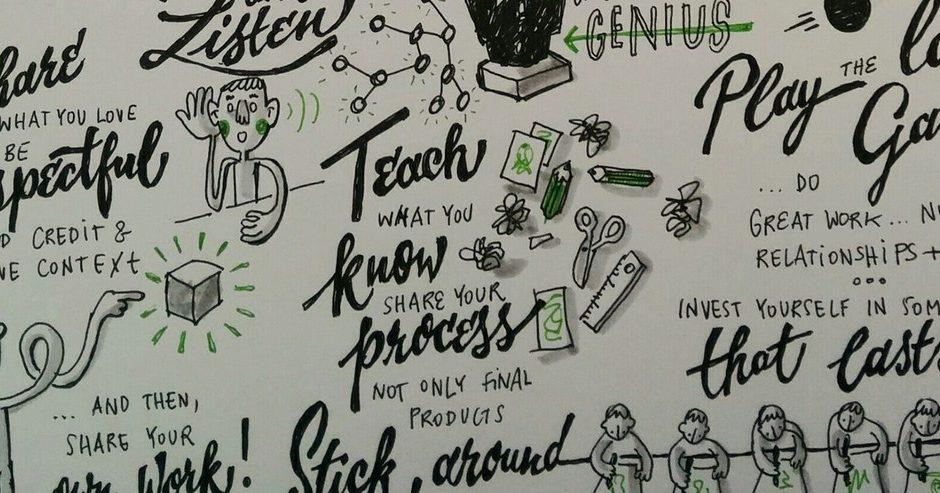 Listen
hare
WHAT YOU LOVE
BE
spectful
CREDIT &
CONTEXT
... AND THEN,
SHARE YOUR
own Work!
Teach
WHAT YOU
know
SHARE YOUR
process
NOT ONLY FINAL
PRODUCTS
Stick around
GENIUS
Play THE lo
Ga
... DO
GREAT WORK... N
RELATIONSHIPS +
...
INVEST YOURSELF IN SOM
that lasts